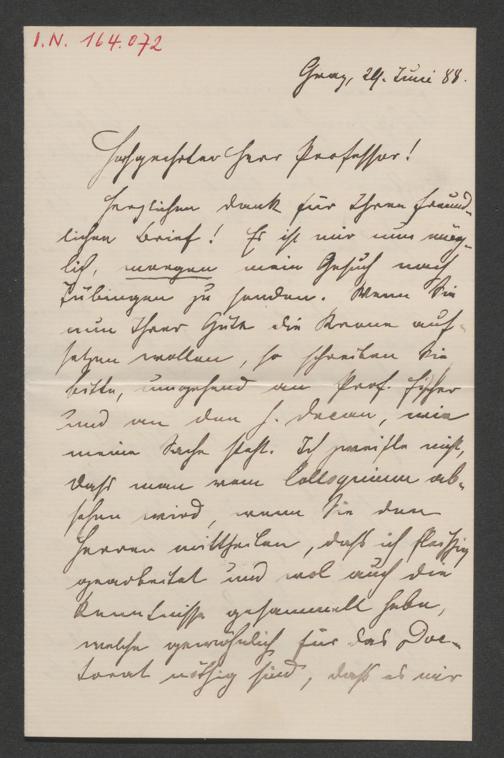 I. N. 164.072
Graz, 29. Juni 88.
Hochgeehrter Herr Professor!
Herzlichen Dank für Ihren freund-
lichen Brief! Es ist mir nun mög-
lich, morgen mein Gesuch nach
Tübingen zu senden. Wenn Sie
nun Ihrer Güte die Krone auf-
setzen wollen, so schreiben Sie
bitte, umgehend an Prof. Fischer
und an den H. Decan, wie
meine Sache steht. Ich zweifle nicht,
daß man vom Colloquium ab-
sehen wird, wenn Sie den
Herren mittheilen, daß ich fleißig
gearbeitet und wol auch die
Kenntnisse gesammelt habe,
welche gewöhnlich für das Doc-
torat nöthig sind, daß es mir